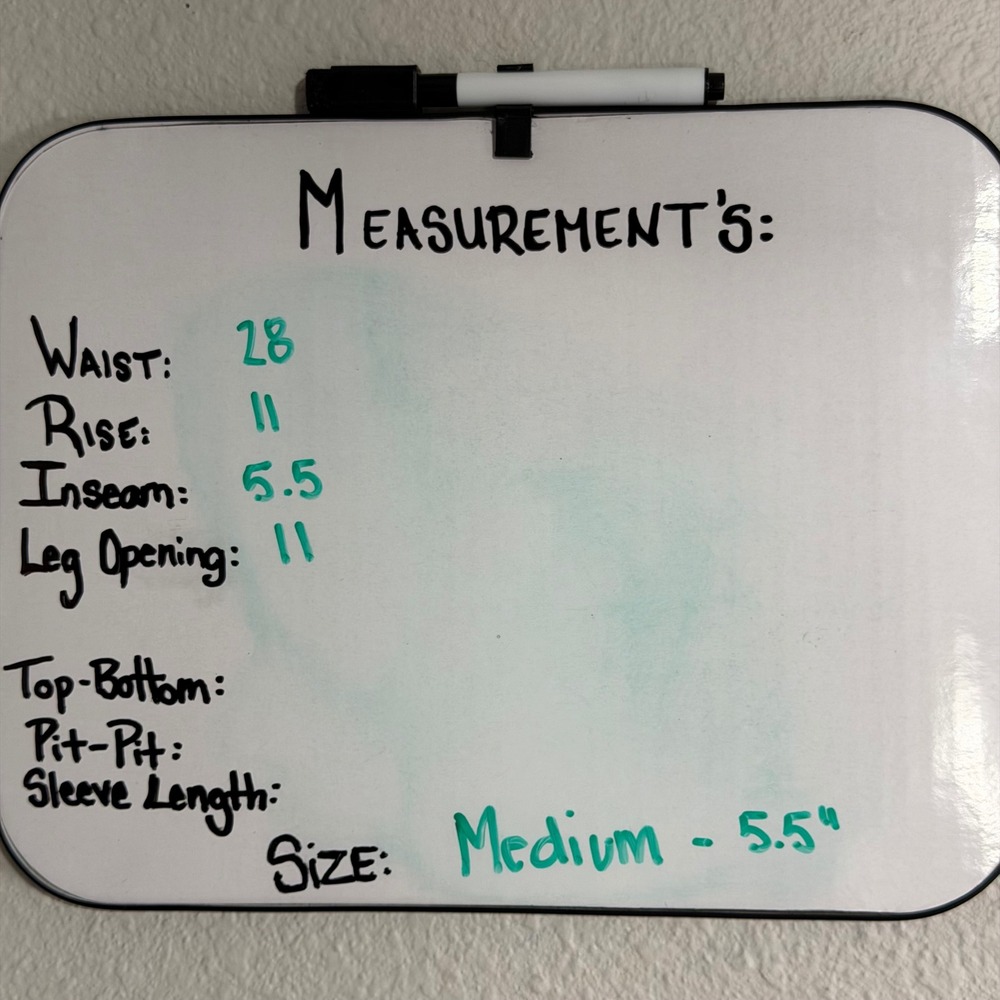 MEASUREMENT'S:
WAIST: 28
RISE: 11
Inseam: 5.5
Leg Opening: 11
Top-Bottom:
Pit-Pit:
Sleeve Length:
SiZE: Medium - 5.5"